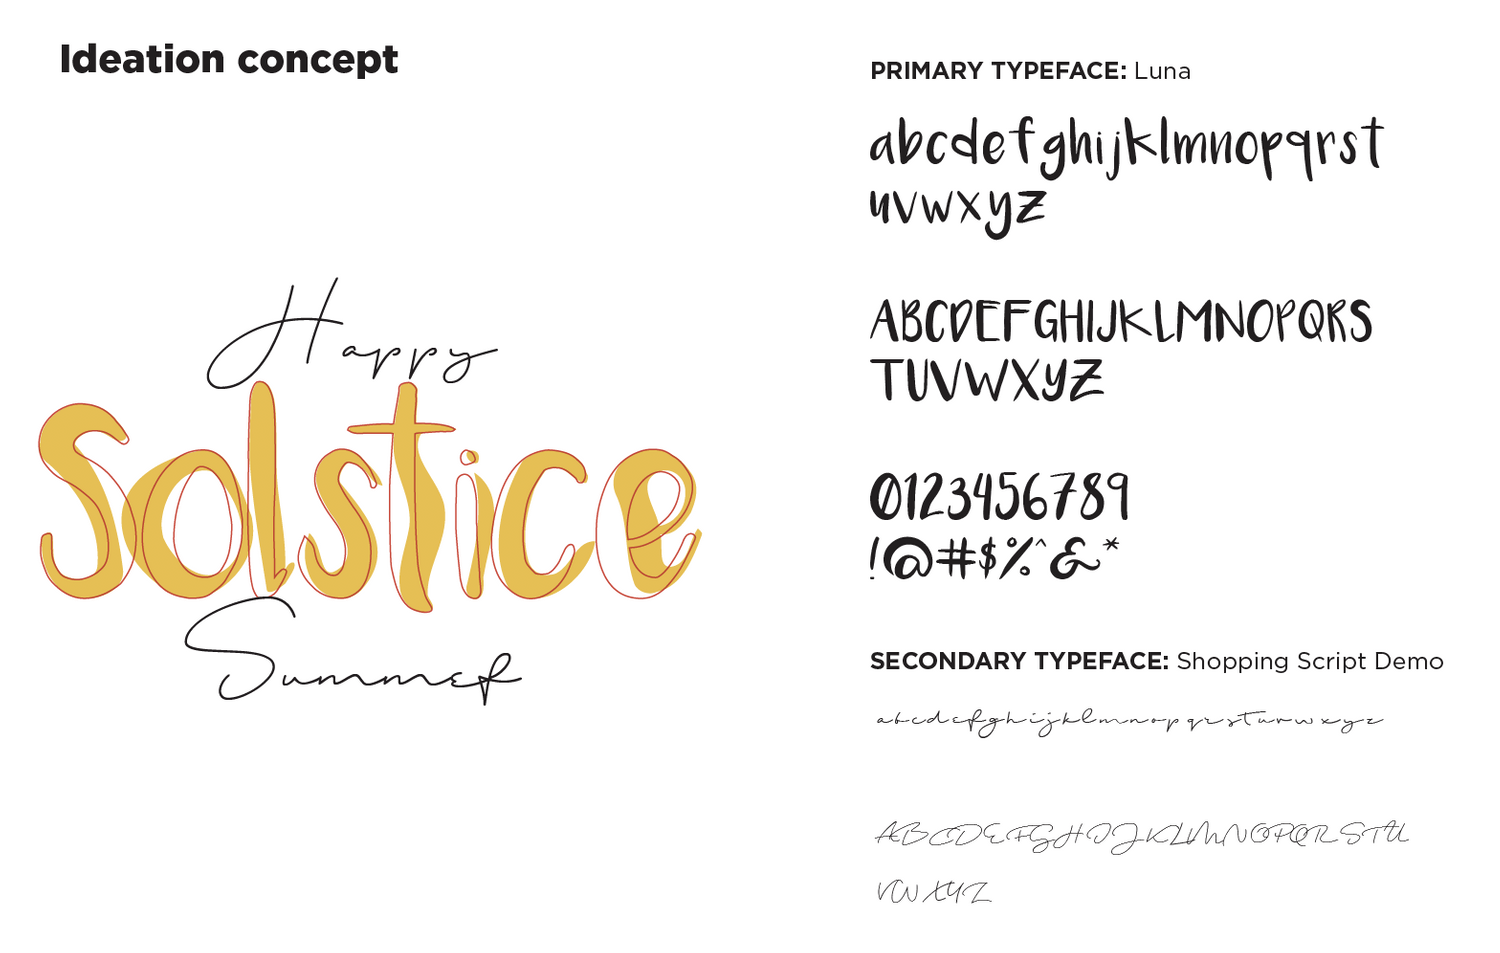 Ideation concept
Happy
Solstice
Summer
PRIMARY TYPEFACE: Luna
abcdefghijklmnopqrst
uvwxyz
ABCDEFGHIJKLMNOPQRS
TUVWXYZ
0123456789
!@#$%^&*
SECONDARY TYPEFACE: Shopping Script Demo
abcdefghijklmnopqrstuvwxyz
ABCDEFGHIJKLMNOPQRSTU
VWXYZ